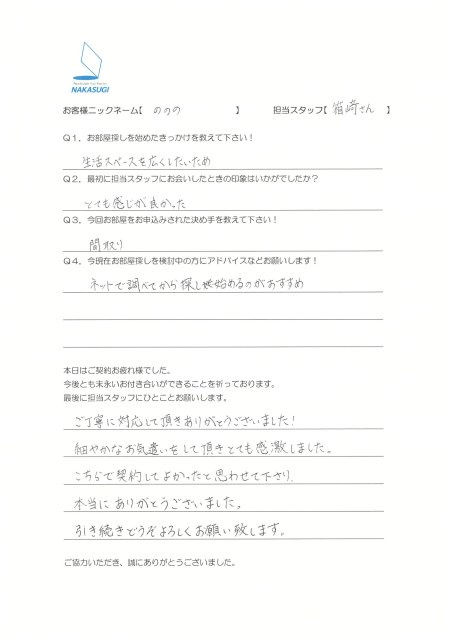 NAKASUGI
お客様ニックネーム【 ののの 】 担当スタッフ【 箱崎さん 】
Q1．お部屋探しを始めたきっかけを教えて下さい！
生活スペースを広くしたいため
Q2．最初に担当スタッフにお会いしたときの印象はいかがでしたか？
とても感じが良かった
Q3．今回お部屋をお申込みされた決め手を教えて下さい！
間取り
Q4．今現在お部屋探しを検討中の方にアドバイスなどお願いします！
ネットで調べてから探し始めるのがおすすめ
本日はご契約お疲れ様でした。
今後とも末永いお付き合いができることを祈っております。
最後に担当スタッフにひとことお願いします。
ご丁寧に対応して頂きありがとうございました！
細やかなお気遣いをして頂きとても感激しました。
こちらで契約してよかったと思わせて下さり、
本当にありがとうございました。
引き続きどうぞよろしくお願い致します。
ご協力いただき、誠にありがとうございました。